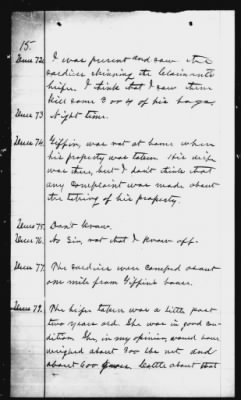 15.
Ans 72. I was present and saw the
soldiers skinning the Claimants
heifer. I think that I saw them
kill some 3 or 4 of his hogs.
Ans 73. Night time.
Ans 74. Giffin, was not at home when
his property was taken. His wife
was there, but I don't think that
any Complaint was made about
the taking of his property.
Ans 75. Don't Know.
Ans 76. No Sir, not that I Know off.
Ans 77. The soldiers were camped about
one mile from Giffins house.
Ans 78. The heifer taken was a little past
two years old. She was in good con-
dition. She, in my opinion, would have
weighed about 300 lbs net and
about 600 gross. Cattle about that